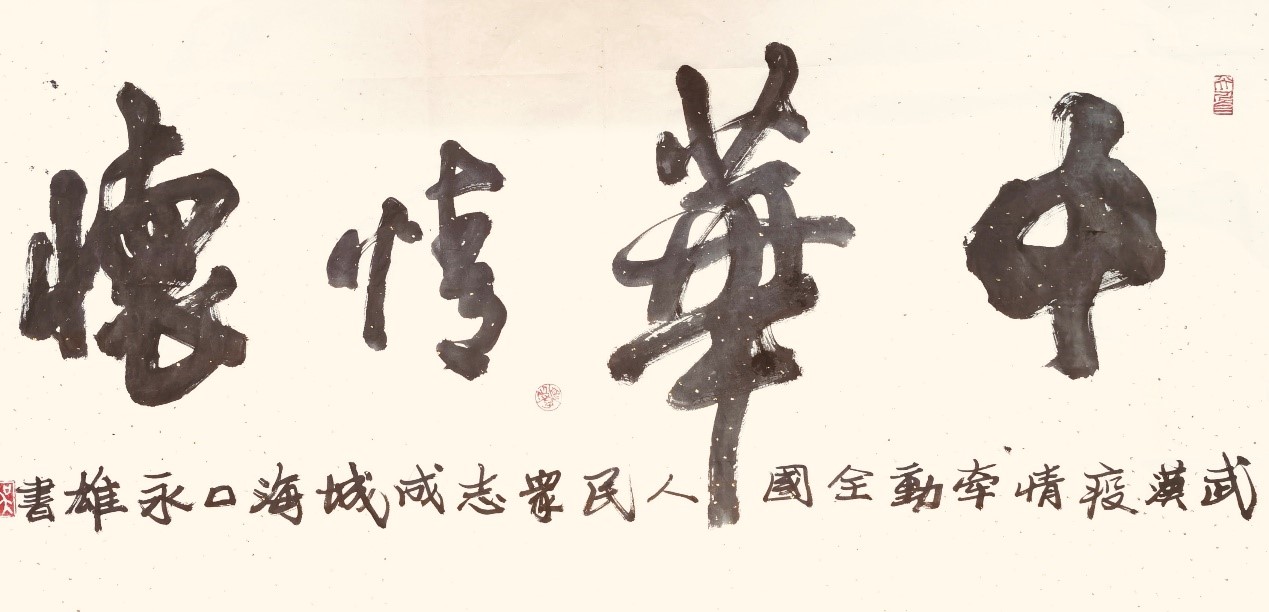 中華情懷
武漢疫情牽動全國人民眾志成城海口永雄書